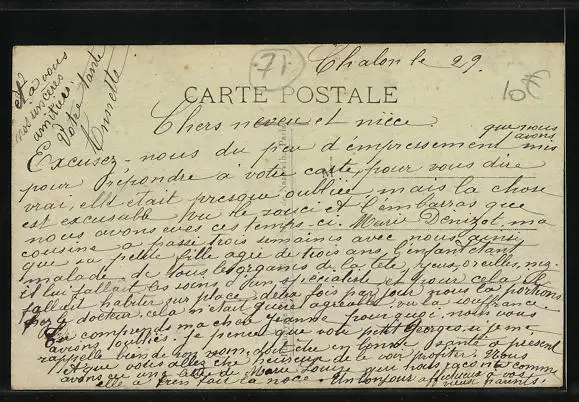 Chalon le 29
71
CARTE POSTALE
10
Chers neveu et nièce.
Excusez-nous du peu d'empressement que nous avons mis
pour répondre à votre carte, pour vous dire
vrai, elle était presque oubliée mais la chose
est excusable vu le souci et l'embarras que
nous avons eues ces temps-ci. Marie Denizot, ma
cousine a passé trois semaines avec nous ainsi
que sa petite fille agée de trois ans, l'enfant étant
malade de tous les organes de la tête, yeux, oreilles, nez
et lui fallait les soins d'un spécialiste et pour cela
fallait habiter sur place, deux fois par jour nous la portions
le docteur, cela n'était guère agréable, vu la souffrance
comprends ma chère Jeanne pourquoi nous vous
avons oubliés. Je pense que votre petit Georges, si je me
rappelle bien de son nom, doit être en bonne santé à présent
et que vous allez être heureux de le voir profiter. Nous
avons eu une lettre de Marie Louise que nous raconte comme
elle a bien fait la noce. Un bonjour affectueux à vos
vieux parents.
et à vous
nos sincères
amitiés
Votre tante
Annette